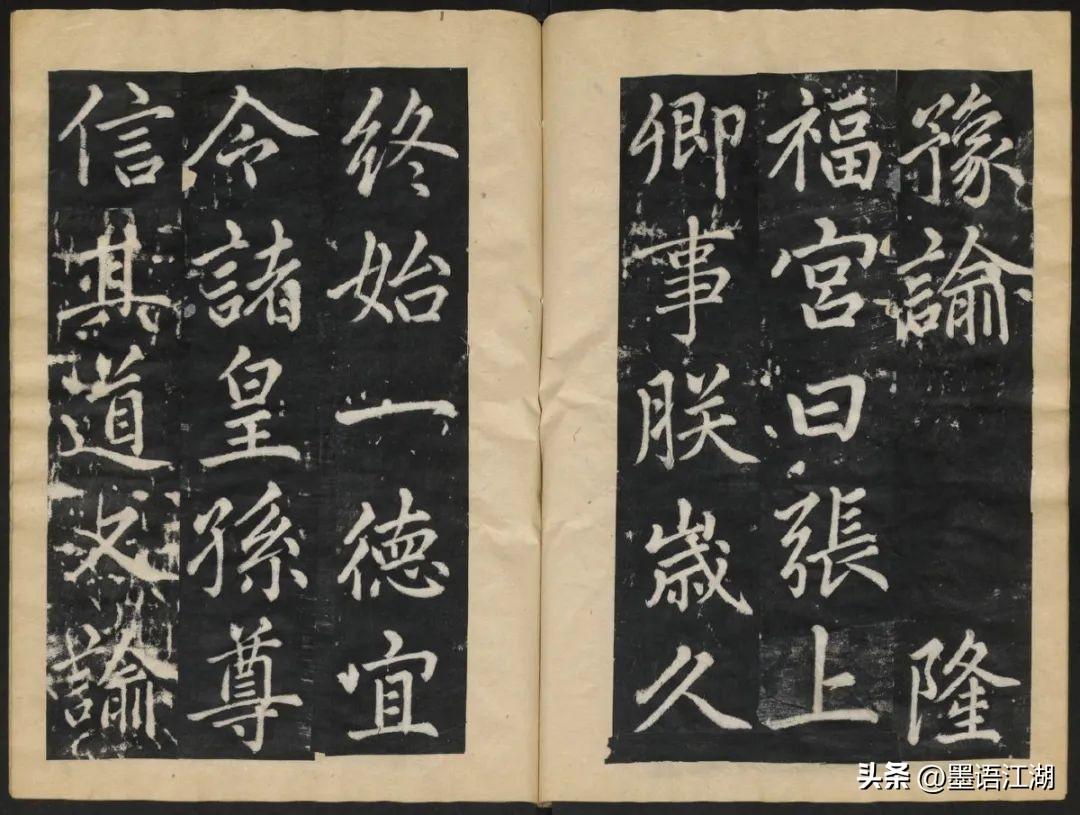 豫諭　　隆
福宮曰張上
卿事朕歲久
終始一德宜
令諸皇孫尊
信其道又諭
头条 @墨语江湖